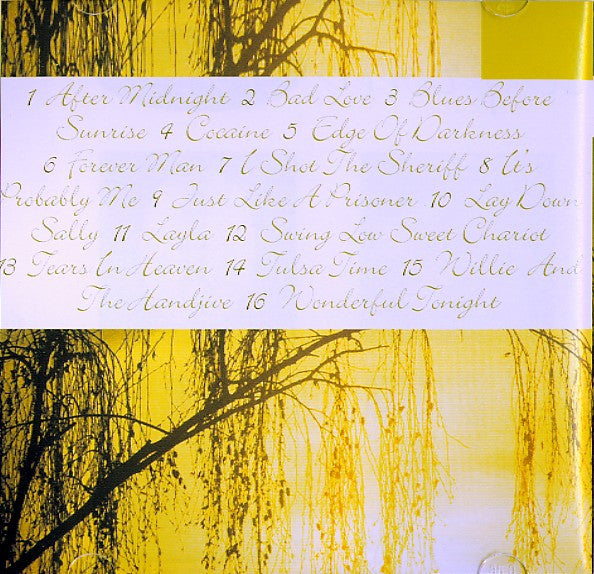 1 After Midnight 2 Bad Love 3 Blues Before
Sunrise 4 Cocaine 5 Edge Of Darkness
6 Forever Man 7 I Shot The Sheriff 8 It's
Probably Me 9 Just Like A Prisoner 10 Lay Down
Sally 11 Layla 12 Swing Low Sweet Chariot
13 Tears In Heaven 14 Tulsa Time 15 Willie And
The Handjive 16 Wonderful Tonight